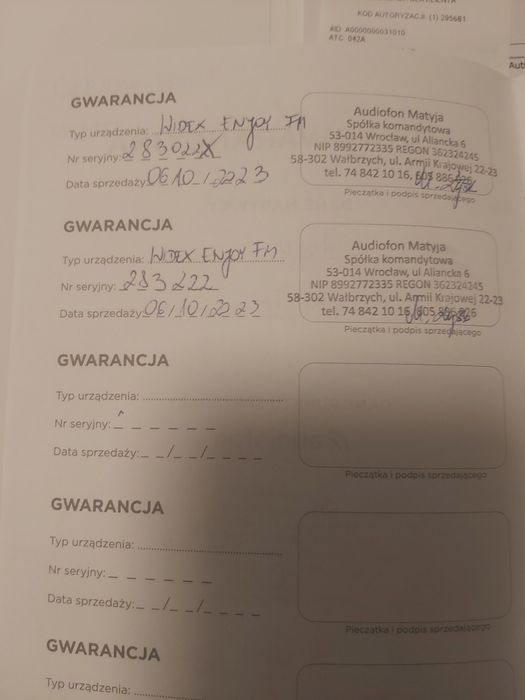 KOD AUTORYZACJI (1) 295681
AID A0000000031010
ATC 042A
Aut
GWARANCJA
Typ urządzenia: WIDEX ENJOY FM
Nr seryjny:
Data sprzedaży: 06 10 / 2223
Audiofon Matyja
Spółka komandytowa
53-014 Wrocław, ul Aliancka 6
NIP 8992772335 REGON 362324245
58-302 Wałbrzych, ul. Armii Krajowej 22-23
tel. 74 842 10 16, 605
Pieczątka i podpis sprzedającego
GWARANCJA
Typ urządzenia: WIDEX ENJOY FM
Nr seryjny: 283222
Data sprzedaży: 06/10/2223
Audiofon Matyja
Spółka komandytowa
53-014 Wrocław, ul Aliancka 6
NIP 8992772335 REGON 362324245
58-302 Wałbrzych, ul. Armii Krajowej 22-23
tel. 74 842 10 16, 605
Pieczątka i podpis sprzedającego
GWARANCJA
Typ urządzenia:
Nr seryjny:
Data sprzedaży: / /
Pieczątka i podpis sprzedającego
GWARANCJA
Typ urządzenia:
Nr seryjny:
Data sprzedaży: / /
Pieczątka i podpis sprzedającego
GWARANCJA
Typ urządzenia: